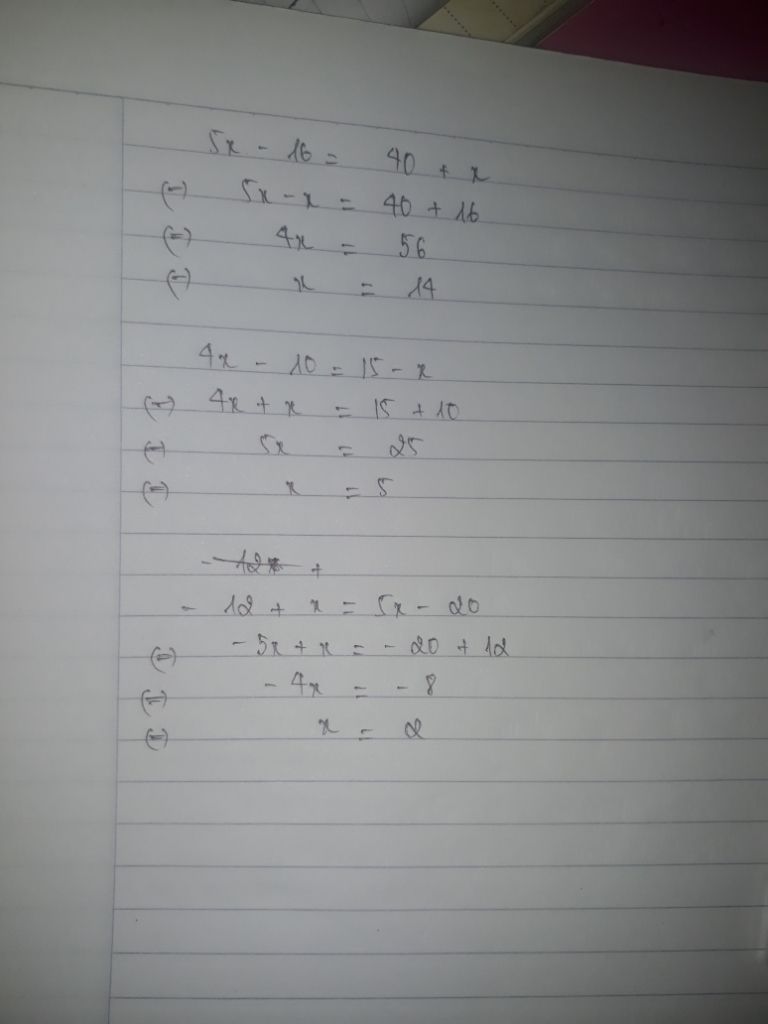 5x - 16 = 40 + x
(=) 5x - x = 40 + 16
(=) 4x = 56
(=) x = 14
4x - 10 = 15 - x
(=) 4x + x = 15 + 10
(=) 5x = 25
(=) x = 5
- 12x +
- 12 + x = 5x - 20
(=) - 5x + x = - 20 + 12
(=) - 4x = - 8
(=) x = 2